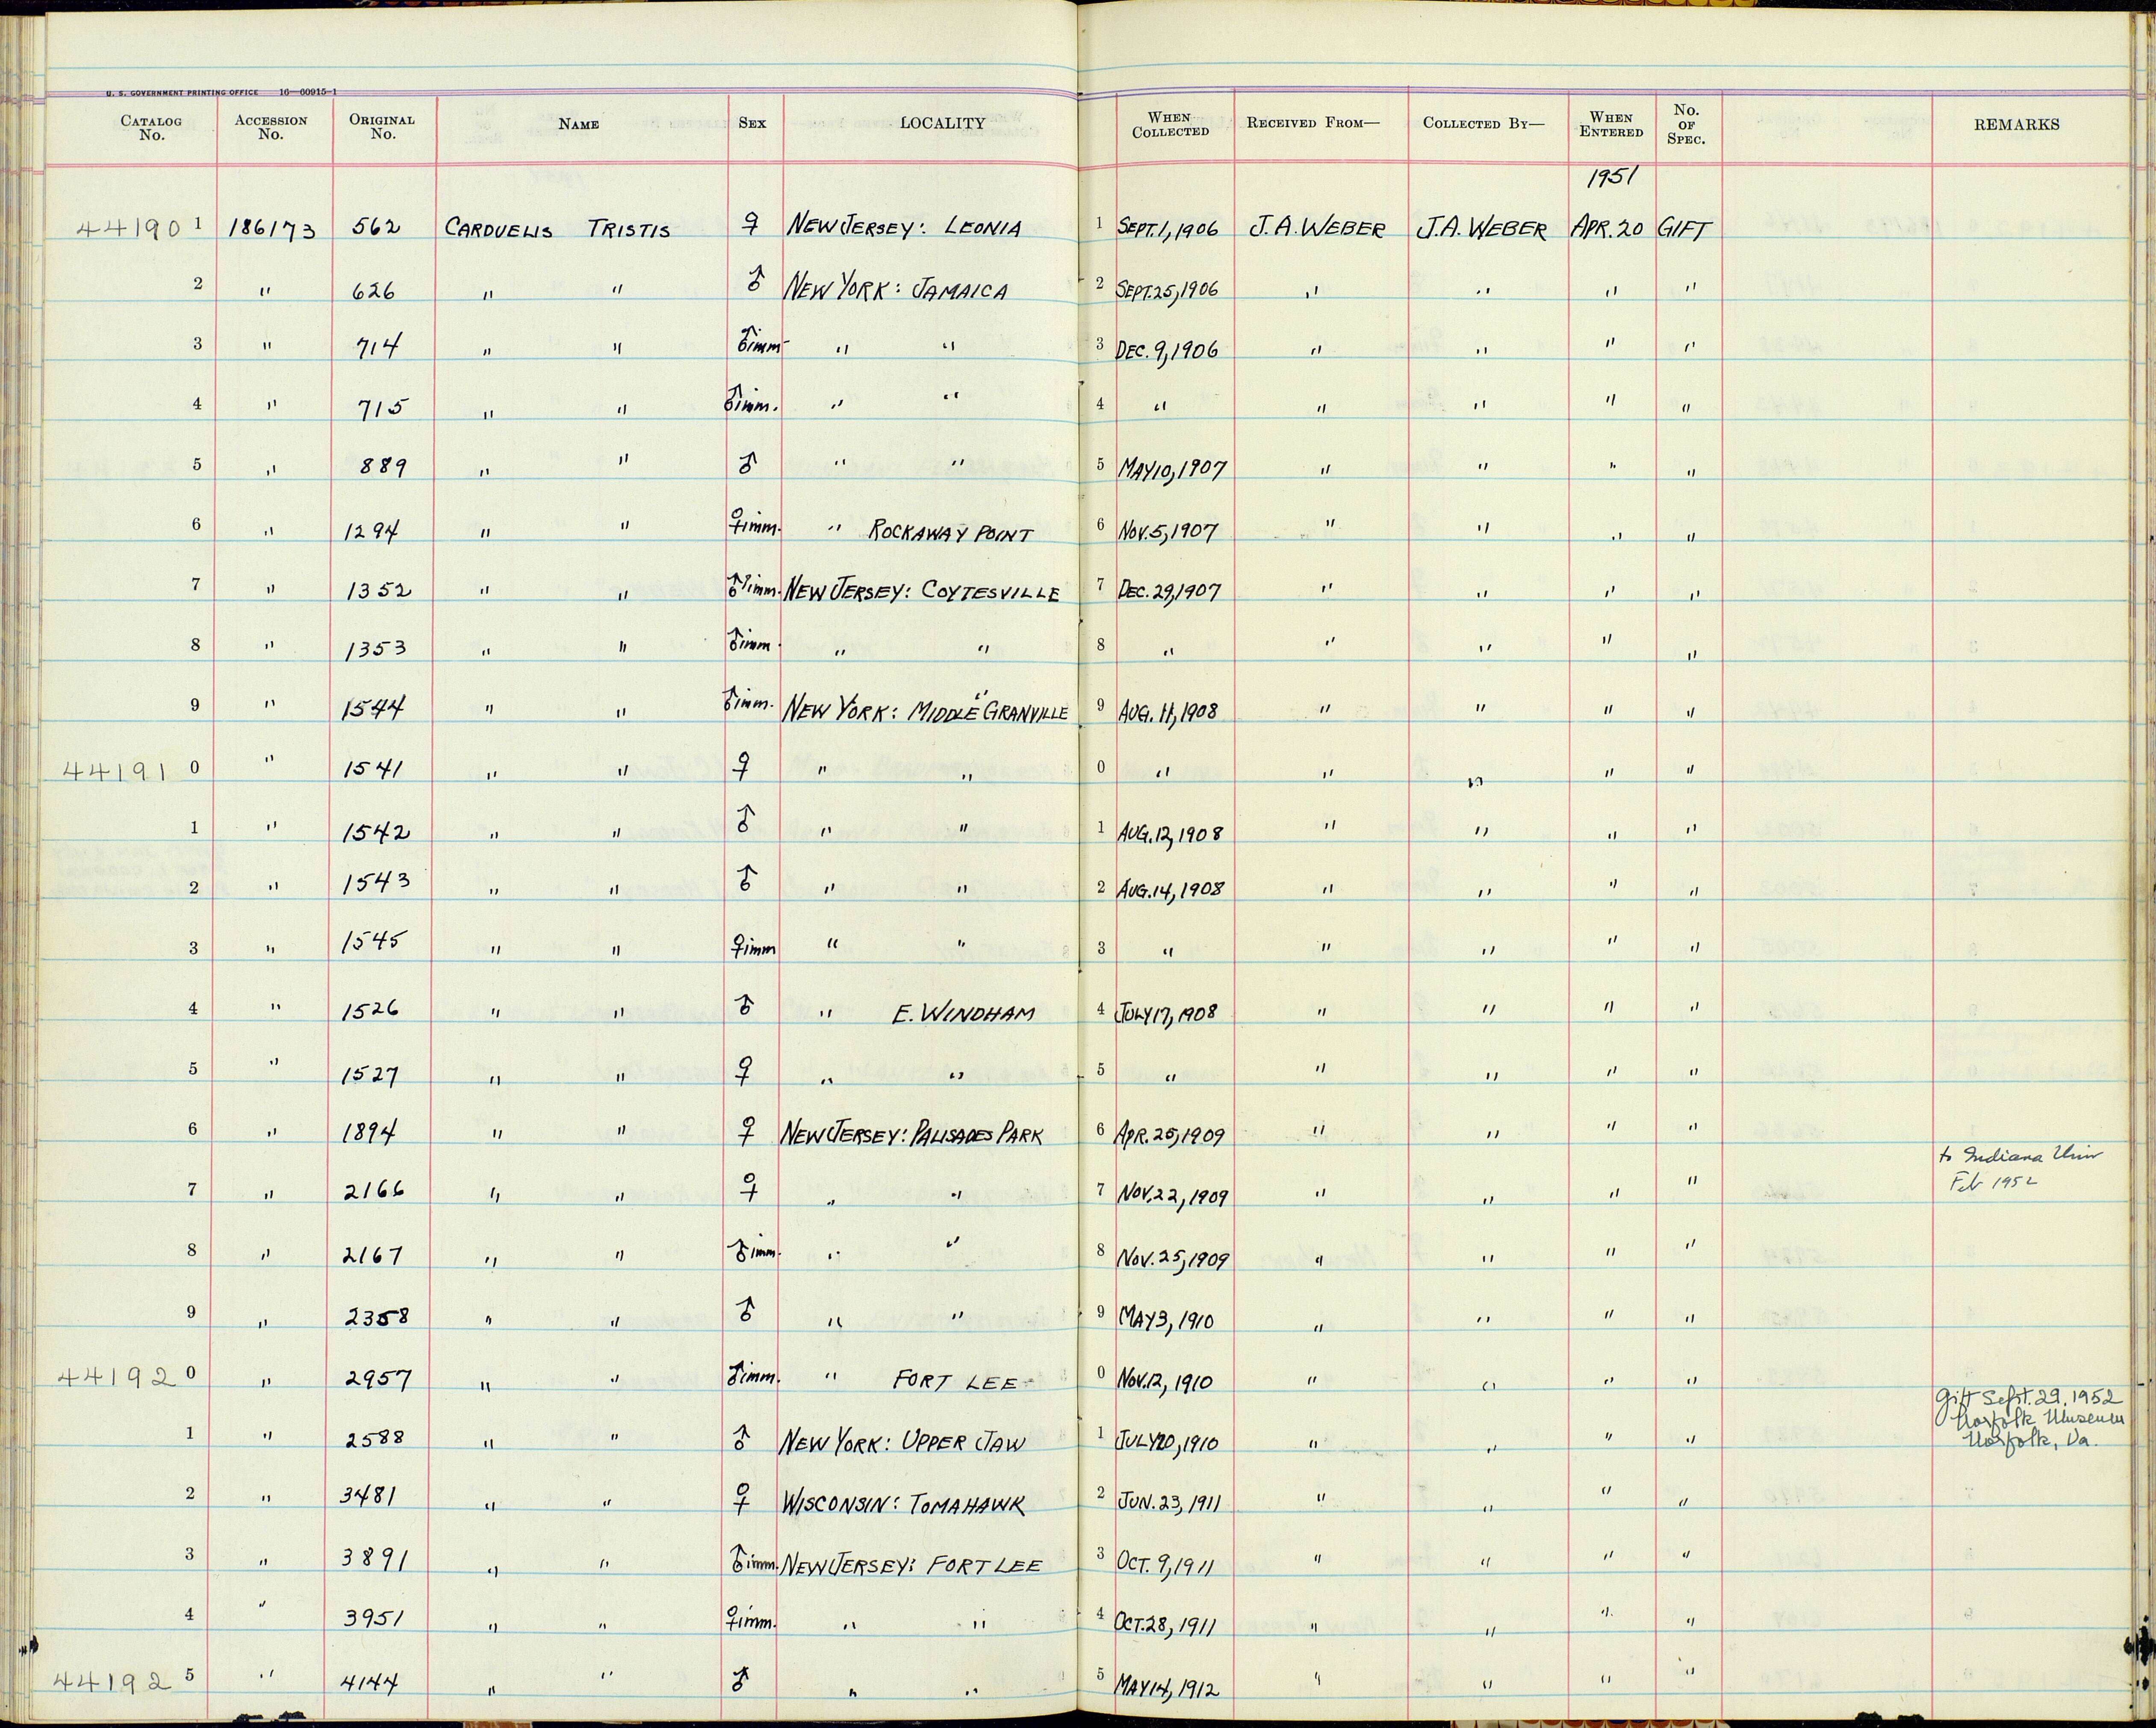 U. S. GOVERNMENT PRINTING OFFICE 16—60915-1
CATALOG No. ACCESSION No. ORIGINAL No. NAME SEX LOCALITY WHEN COLLECTED RECEIVED FROM— COLLECTED BY— WHEN ENTERED No. OF SPEC. REMARKS
1951
44190 1 186173 562 CARDUELIS TRISTIS ♀ NEW JERSEY: LEONIA 1 SEPT. 1, 1906 J. A. WEBER J. A. WEBER APR. 20 GIFT
2 " 626 " " ♂ NEW YORK: JAMAICA 2 SEPT. 25, 1906 " " " "
3 " 714 " " ♂imm " " 3 DEC. 9, 1906 " " " "
4 " 715 " " ♂imm. " " 4 " " " " "
5 " 889 " " ♂ " " 5 MAY 10, 1907 " " " "
6 " 1294 " " ♀imm. " ROCKAWAY POINT 6 NOV. 5, 1907 " " " "
7 " 1352 " " ♂?imm. NEW JERSEY: COYTESVILLE 7 DEC. 29, 1907 " " " "
8 " 1353 " " ♂imm. " " 8 " " " " "
9 " 1544 " " ♂imm. NEW YORK: MIDDLE GRANVILLE 9 AUG. 11, 1908 " " " "
44191 0 " 1541 " " ♀ " " 0 " " " " "
1 " 1542 " " ♂ " " 1 AUG. 12, 1908 " " " "
2 " 1543 " " ♂ " " 2 AUG. 14, 1908 " " " "
3 " 1545 " " ♀imm " " 3 " " " " "
4 " 1526 " " ♂ " E. WINDHAM 4 JULY 17, 1908 " " " "
5 " 1527 " " ♀ " " 5 " " " " "
6 " 1894 " " ♀ NEW JERSEY: PALISADES PARK 6 APR. 25, 1909 " " " "
to Indiana Univ
7 " 2166 " " ♀ " " 7 NOV. 22, 1909 " " " " Feb 1952
8 " 2167 " " ♂imm. " " 8 NOV. 25, 1909 " " " "
9 " 2358 " " ♂ " " 9 MAY 3, 1910 " " " "
44192 0 " 2957 " " ♂imm. " FORT LEE 0 NOV. 12, 1910 " " " "
Gift Sept. 29, 1952
Norfolk Museum
1 " 2588 " " ♂ NEW YORK: UPPER JAW 1 JULY 20, 1910 " " " " Norfolk, Va.
2 " 3481 " " ♀ WISCONSIN: TOMAHAWK 2 JUN. 23, 1911 " " " "
3 " 3891 " " ♂imm. NEW JERSEY: FORT LEE 3 OCT. 9, 1911 " " " "
4 " 3951 " " ♀imm. " " 4 OCT. 28, 1911 " " " "
44192 5 " 4144 " " ♂ " " 5 MAY 14, 1912 " " " "